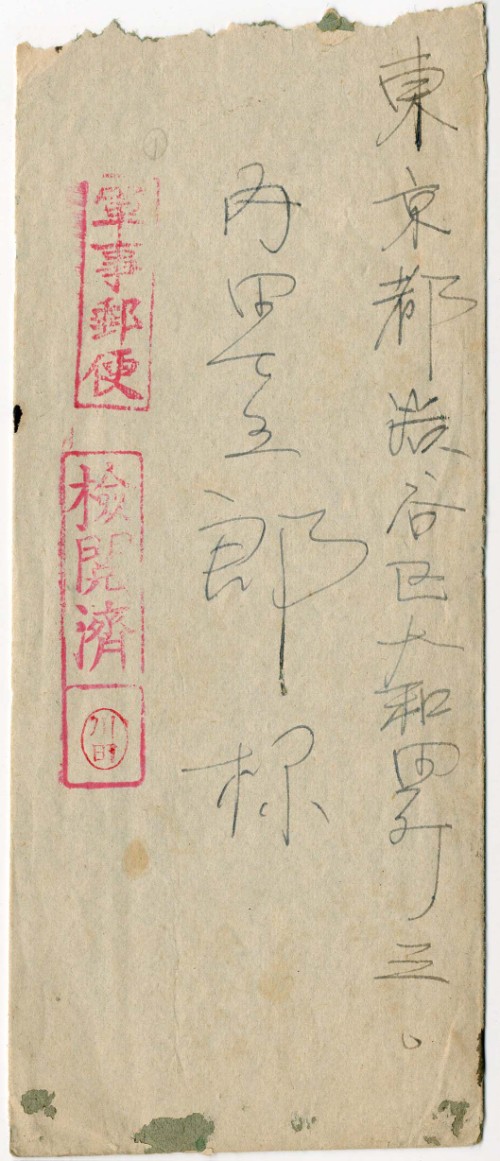 東京都渋谷区大和田町三〇
内田七五郎様
軍事郵便
檢閲濟
川田